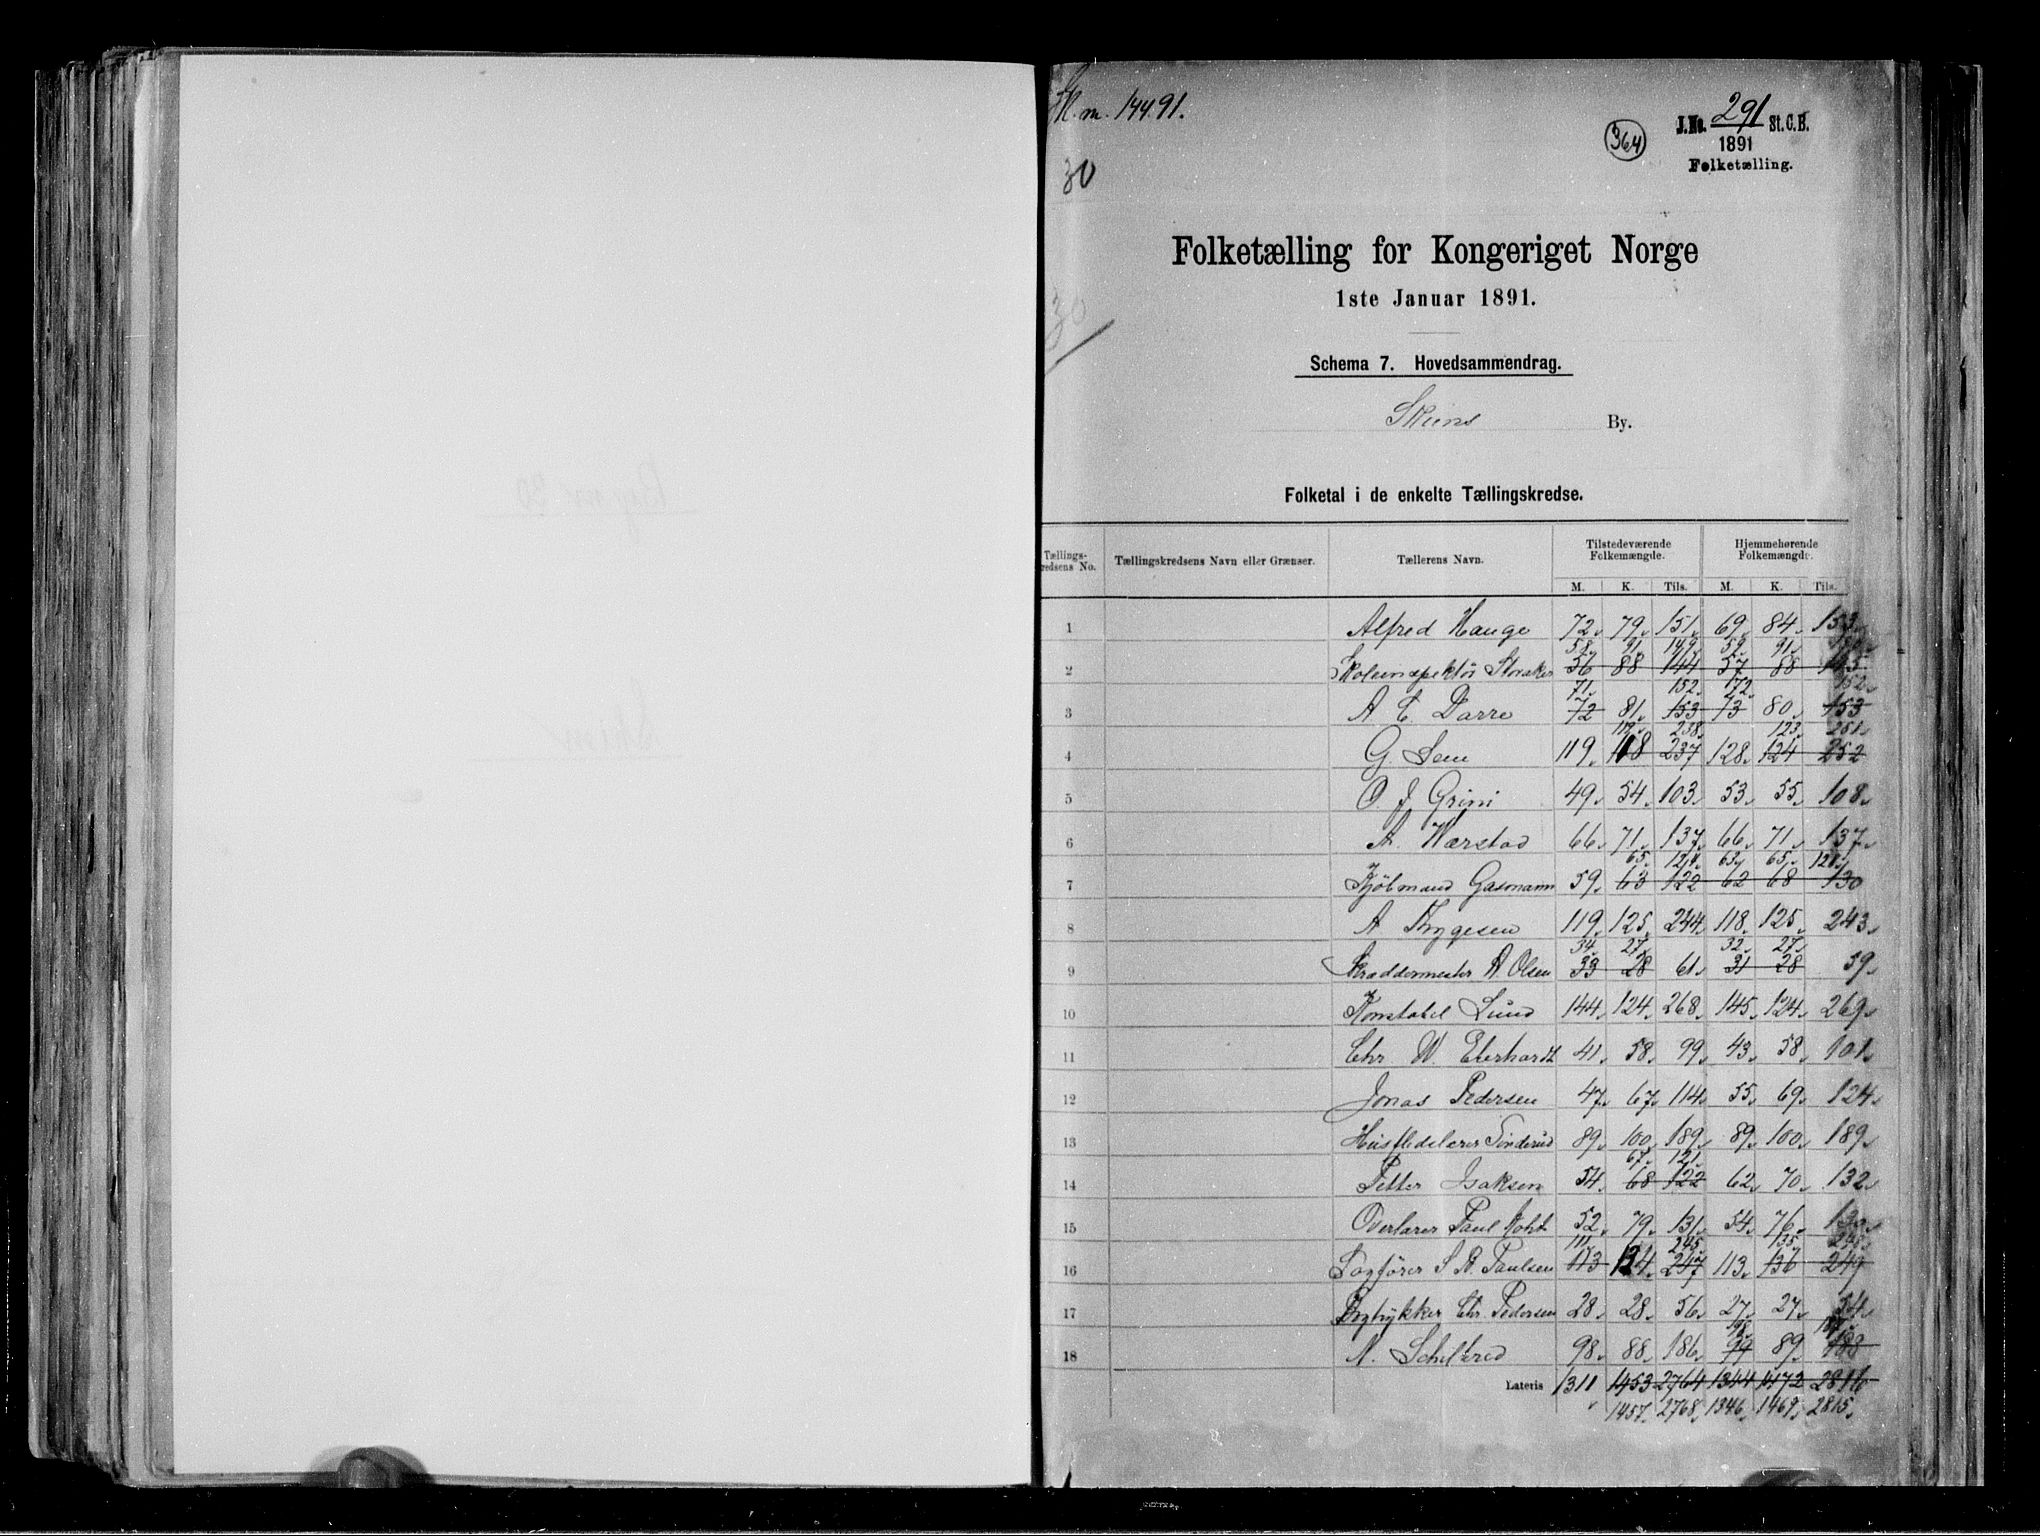 144.91.
364
J.No. 291 St.C.B.
1891
Folketælling.
30
30
Folketælling for Kongeriget Norge
1ste Januar 1891.
Schema 7. Hovedsammendrag.
Skiens By.
Folketal i de enkelte Tællingskredse.
Tællings- redsens No. Tællingskredsens Navn eller Grænser. Tællerens Navn. Tilstedeværende Folkemængde. Hjemmehørende Folkemængde.
M. K. Tils. M. K. Tils.
1 Alfred Hauge 72 79 151 69 84 153
58 91 149 59 91 150
2 Skoleinspektør Storaker 56 88 144 57 88 145
71 152 72 152
3 A C Darre 72 81 153 73 80 153
119 238 123 251
4 G. Sem 119 118 237 128 124 252
5 O. J Grini 49 54 103 53 55 108
6 A. Værstad 66 71 137 66 71 137
65 124 63 65 128
7 Kjøbmand Gasmann 59 63 122 62 68 130
8 A Thygesen 119 125 244 118 125 243
34 27 32 27
9 Skræddermester A. Olsen 33 28 61 31 28 59
10 Konstabel Lund 144 124 268 145 124 269
11 Chr W. Eberhardt 41 58 99 43 58 101
12 Jonas Pedersen 47 67 114 55 69 124
13 89 100 189 89 100 189
67 121
14 Petter Isaksen 54 68 122 62 70 132
15 Overlærer Paul 52 79 131 54 76 130
111 245 135 248
16 Sagfører S. Paulsen 113 134 247 113 136 249
17 Chr. Pedersen 28 28 56 27 27 54
98 187
18 N. 98 88 186 99 89 188
Lateris 1311 1453 2764 1344 1472 2816
1457 2768 1346 1469 2815